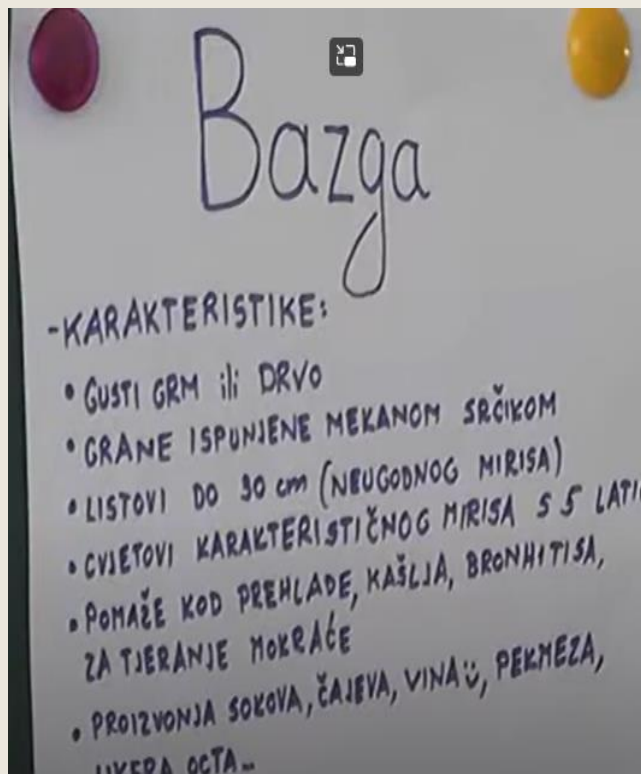 Bazga
-KARAKTERISTIKE:
• GUSTI GRM ili DRVO
• GRANE ISPUNJENE MEKANOM SRČIKOM
• LISTOVI DO 30 cm (NEUGODNOG MIRISA)
• CVJETOVI KARAKTERISTIČNOG MIRISA S 5 LATI
• POMAŽE KOD PREHLADE, KAŠLJA, BRONHITISA,
ZA TJERANJE MOKRAĆE
• PROIZVONJA SOKOVA, ČAJEVA, VINA, PEKMEZA,
LIKERA OCTA...